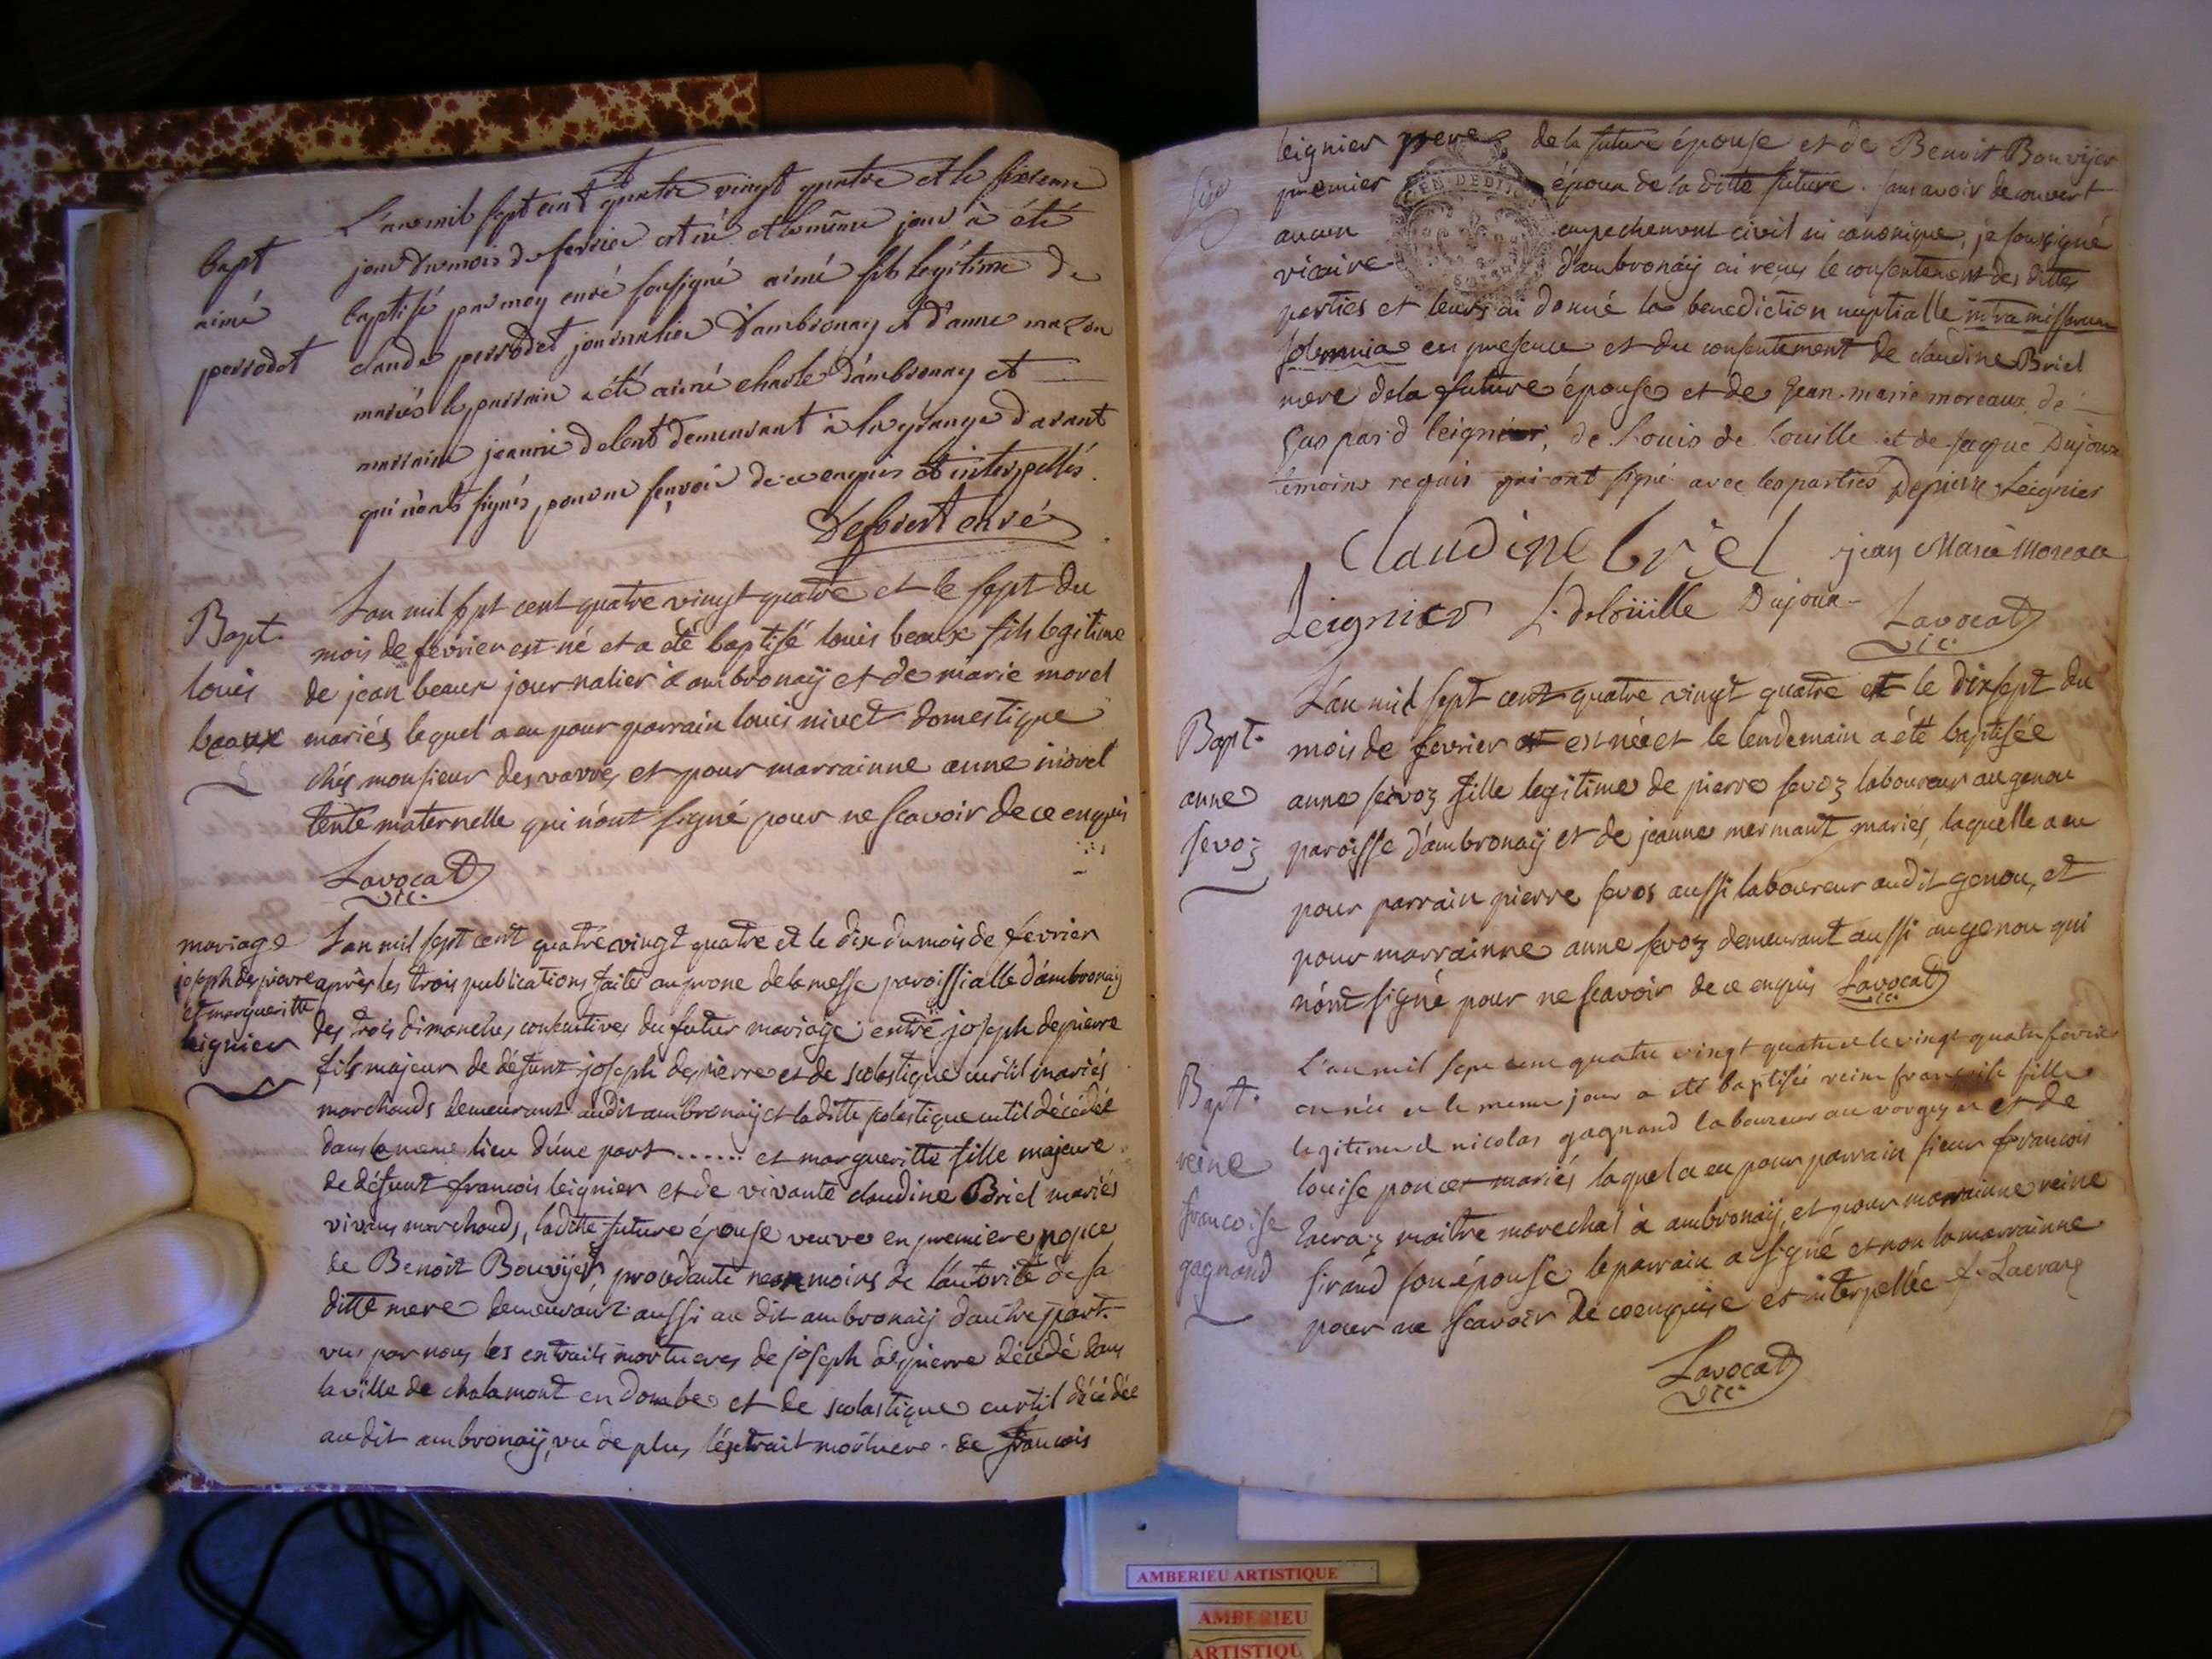 L'an mil sept cent quatre vingt quatre et le sixieme
jour du mois de fevrier est né et le même jour à été
baptisé par moy curé soussigné aimé fils legitime de
claude perrodet journalier d'ambronay et d'anne mazon
mariés le parrain a été aimé charle d'ambronay et
marraine jeanne delent demeurant à la grange d'arant
qui n'ont signés pour ne sçavoir de ce enquis et interpellés.
bapt
aimé
perrodet
curé
L'an mil sept cent quatre vingt quatre et le sept du
mois de fevrier est né et a été baptisé louis beaux fils legitime
de jean beaux journalier à ambronaÿ et de marie morel
mariés lequel a eu pour parrain louis nivet domestique
chés monsieur desvavres et pour marrainne anne morel
tente maternelle qui n'ont signé pour ne scavoir de ce enquis
Bapt.
louis
beaux
Lavocat
vic.
L'an mil sept cent quatre vingt quatre et le dix du mois de février
après les trois publications faites au prone de la messe paroissialle d'ambronaÿ
des trois dimanches consecutives du futur mariage entre joseph depierre
fils majeur de défunt joseph depierre et de scolastique curtil mariés
marchands demeurant audit ambronaÿ et la ditte scolastique curtil décédée
dans le meme lieu d'une part ...... et margueritte fille majeure
de défunt francois leignier et de vivante claudine Briel mariés
vivans marchands, la ditte future épouse veuve en premiere nopce
de Benoit Bouvijer, procedante neonmoins de l'autorité de sa
ditte mere demeurant aussi au dit ambronaÿ d'autre part.
vus par nous les extraits mortueres de joseph depierre décédé dans
la ville de chalamont en Dombe et de scolastique curtil décédée
au dit ambronaÿ, vu de plus l'extrait mortuere de francois
mariage
joseph depierre
et margueritte
leignier
leignier pere de la future épouse et de Benoit Bouvijer
premier époux de la ditte future. sans avoir decouvert
aucun empechement civil ni canonique, je soussigné
vicaire d'ambronaÿ ai reçu le consentement des dittes
parties et leurs ai donné la benediction nuptialle intra missarum
solemnia en presence et du consentement de claudine Briel
mere de la future épouse et de jean marie moreaux, de
Gaspard leignier, de Louis de Louille et de jacque Dujoux
temoins requis qui ont signé avec les parties Depierre Leignier
Claudine briel jean Marie Moreau
Leignier L. delouille Dujoux Lavocat
vic.
L'an mil sept cent quatre vingt quatre et le dixsept du
mois de fevrier est née et le lendemain a été baptisée
anne sevoz fille legitime de pierre sevoz laboureur au genou
paroisse d'ambronaÿ et de jeanne mermant mariés, laquelle a eu
pour parrain pierre sevos aussi laboureur audit genou, et
pour marrainne anne sevoz demeurant aussi au genou qui
n'ont signé pour ne scavoir de ce enquis Lavocat
vic.
Bapt.
anne
sevoz
L'an mil sept cent quatre vingt quatre et le vingt quatre fevrier
est née et le meme jour a été baptisée reine francoise fille
legitime de nicolas gagnand laboureur au et de
louise poncet mariés laquel a eu pour parrain sieur francois
Lacraz maitre marechal à ambronaÿ, et pour marrainne reine
sirand son épouse le parrain a signé et non la marrainne
pour ne scavoir de ce enquise et interpellée f. Lacraz
Bapt.
reine
francoise
gagnand
Lavocat
vic.
AMBERIEU ARTISTIQUE
AMBERIEU
ARTISTIQU